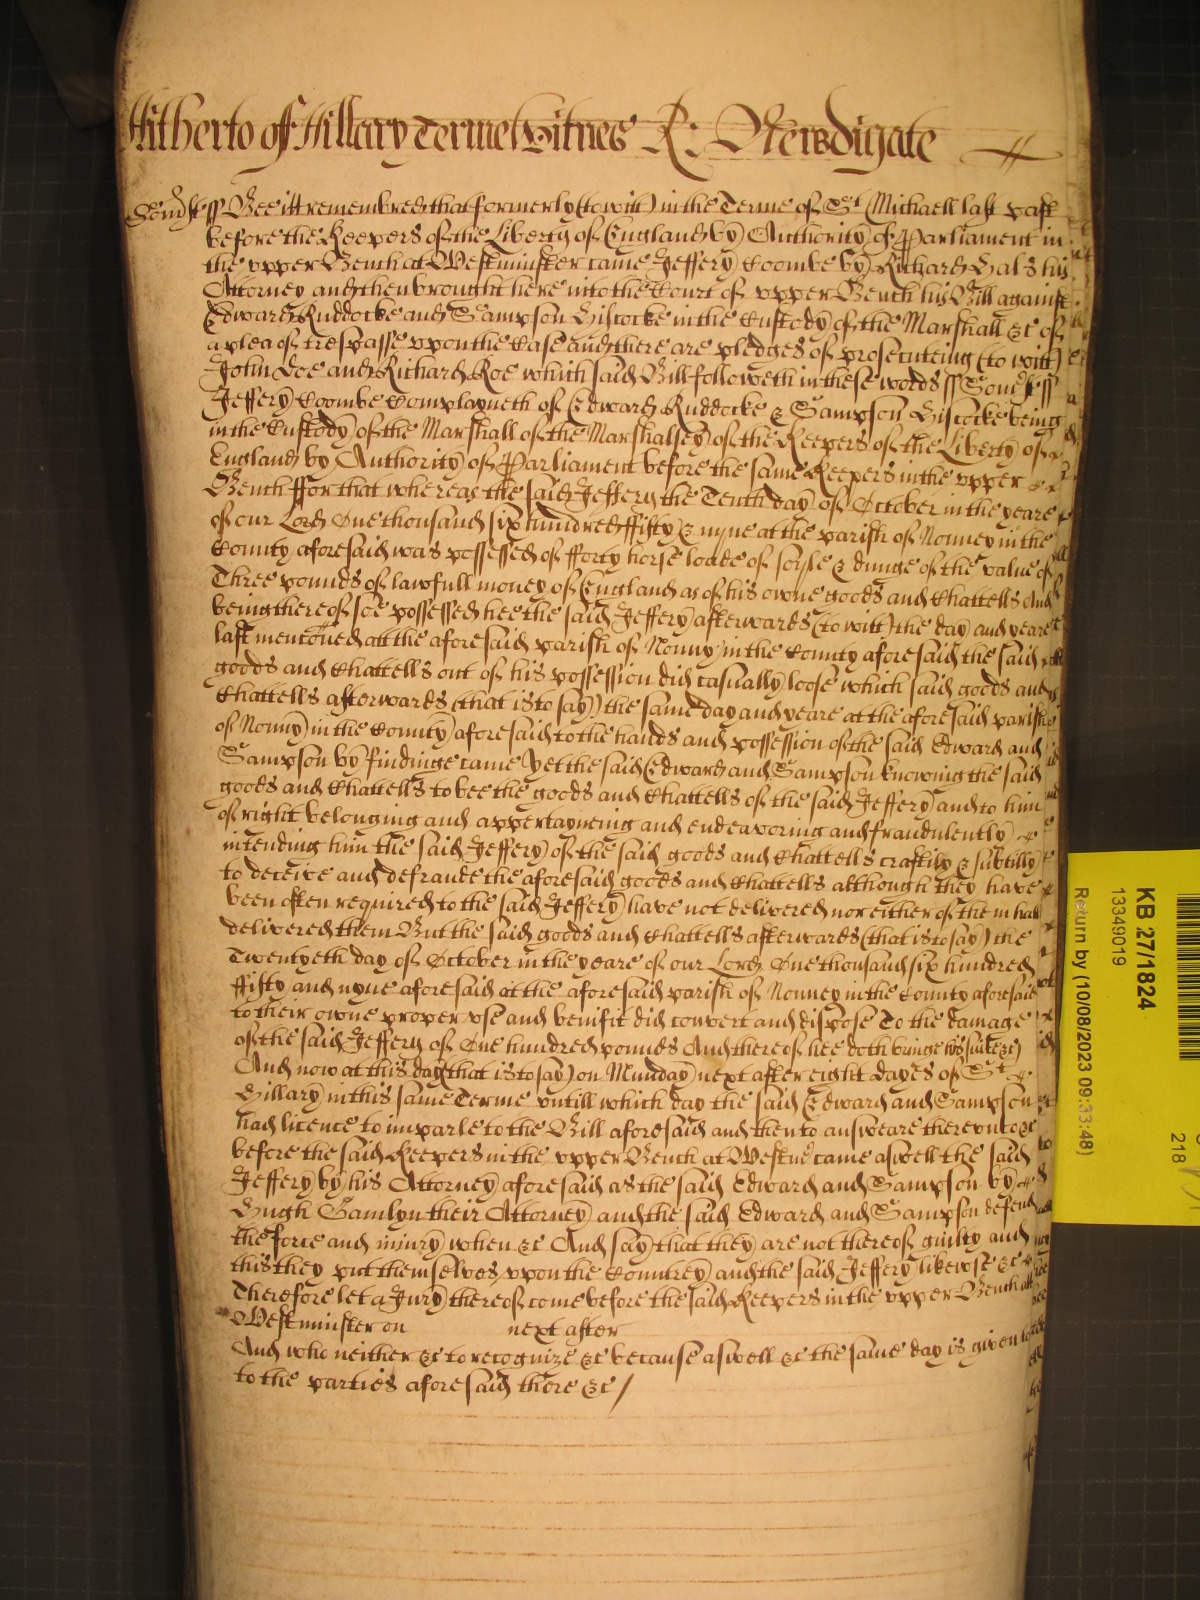 Hitherto of Hillary Terme Witnes R: Newdigate
Somst ss Bee itt remembred that formerly (to witt) in the Terme of St Michaell last past
before the Keepers of the Liberty of England by Authority of Parliament in
the upper Bench at Westminster came Jeffery Coombe by Richard Hals his
Attorney and then brought here into the Court of upper Bench his Bill against
Edward Ruddocke and Sampson Hiscocke in the Custody of the Marshall &c of
a plea of trespasse upon the Case and there are pledges of prosecuteing (to witt)
John Doe and Richard Roe which said Bill followeth in these words ss Somst ss
Jeffery Coombe Complayneth of Edward Ruddocke & Sampson Hiscocke being
in the Custody of the Marshall of the Marshalsey of the Keepers of the Liberty of
England by Authority of Parliament before the same Keepers in the upper
Bench ffor that whereas the said Jeffery the Tenth day of October in the yeare
of our Lord One thousand six hundred ffifty & nyne at the parish of Nonney in the
County aforesaid was possessed of fforty horse loade of soyle & dunge of the value of
Three pounds of lawfull money of England as of his owne goods and Chattells And
being thereof soe possessed hee the said Jeffery afterwards (to witt) the day and yeare
last mentoned att the aforesaid parish of Nonny in the County aforesaid the said
goods and Chattells out of his possession did casually loose which said goods and
Chattells afterwards (that is to say) the same day and yeare at the aforesaid parish
of Nonny in the County aforesaid to the hands and possession of the said Edward and
Sampson by findinge came Yet the said Edward and Sampson knowing the said
goods and Chattells to bee the goods and Chattells of the said Jeffery and to him
of right belonging and appertayneing and endeavoring and fraudulently
intending him the said Jeffery of the said goods and Chattells craftily & subtilly
to deceive and defraude the aforesaid goods and Chattells although they have
been often required to the said Jeffery have not delivered nor either of them hath
delivered them But the said goods and Chattells afterwards (that is to say) the
Twentyeth day of October in the yeare of our Lord One thousand six hundred
ffifty and nyne aforesaid at the aforesaid parish of Nonney in the County aforesaid
to their owne proper use and benifit did convert and dispose To the damage
of the said Jeffery of One hundred pounds And thereof hee doth bringe his suite &c)
And now at this day (that is to say) on Munday next after eight dayes of St
Hillary in this same Terme untill which day the said Edward and Sampson
had licence to imparle to the Bill aforesaid and then to answeare thereunto &c
before the said Keepers in the upper Bench at Westmr came aswell the said
Jeffery by his Attorney aforesaid as the said Edward and Sampson by
Hugh Hamlyn their Attorney and the said Edward and Sampson defend
the force and injury when &c And say that they are not thereof guilty and
this they put themselves upon the Countrey and the said Jeffery likewise &c
Therefore let a Jury thereof come before the said Keepers in the upper Bench att
Westminster on next after
And who neither &c to recognize &c because aswell &c the same day is given
to the parties aforesaid there &c /
KB 27/1824
13349019
Return by (10/08/2023 09:33:48)
218